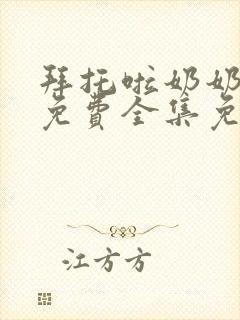 拜托啦奶奶
免費全集免
江方方